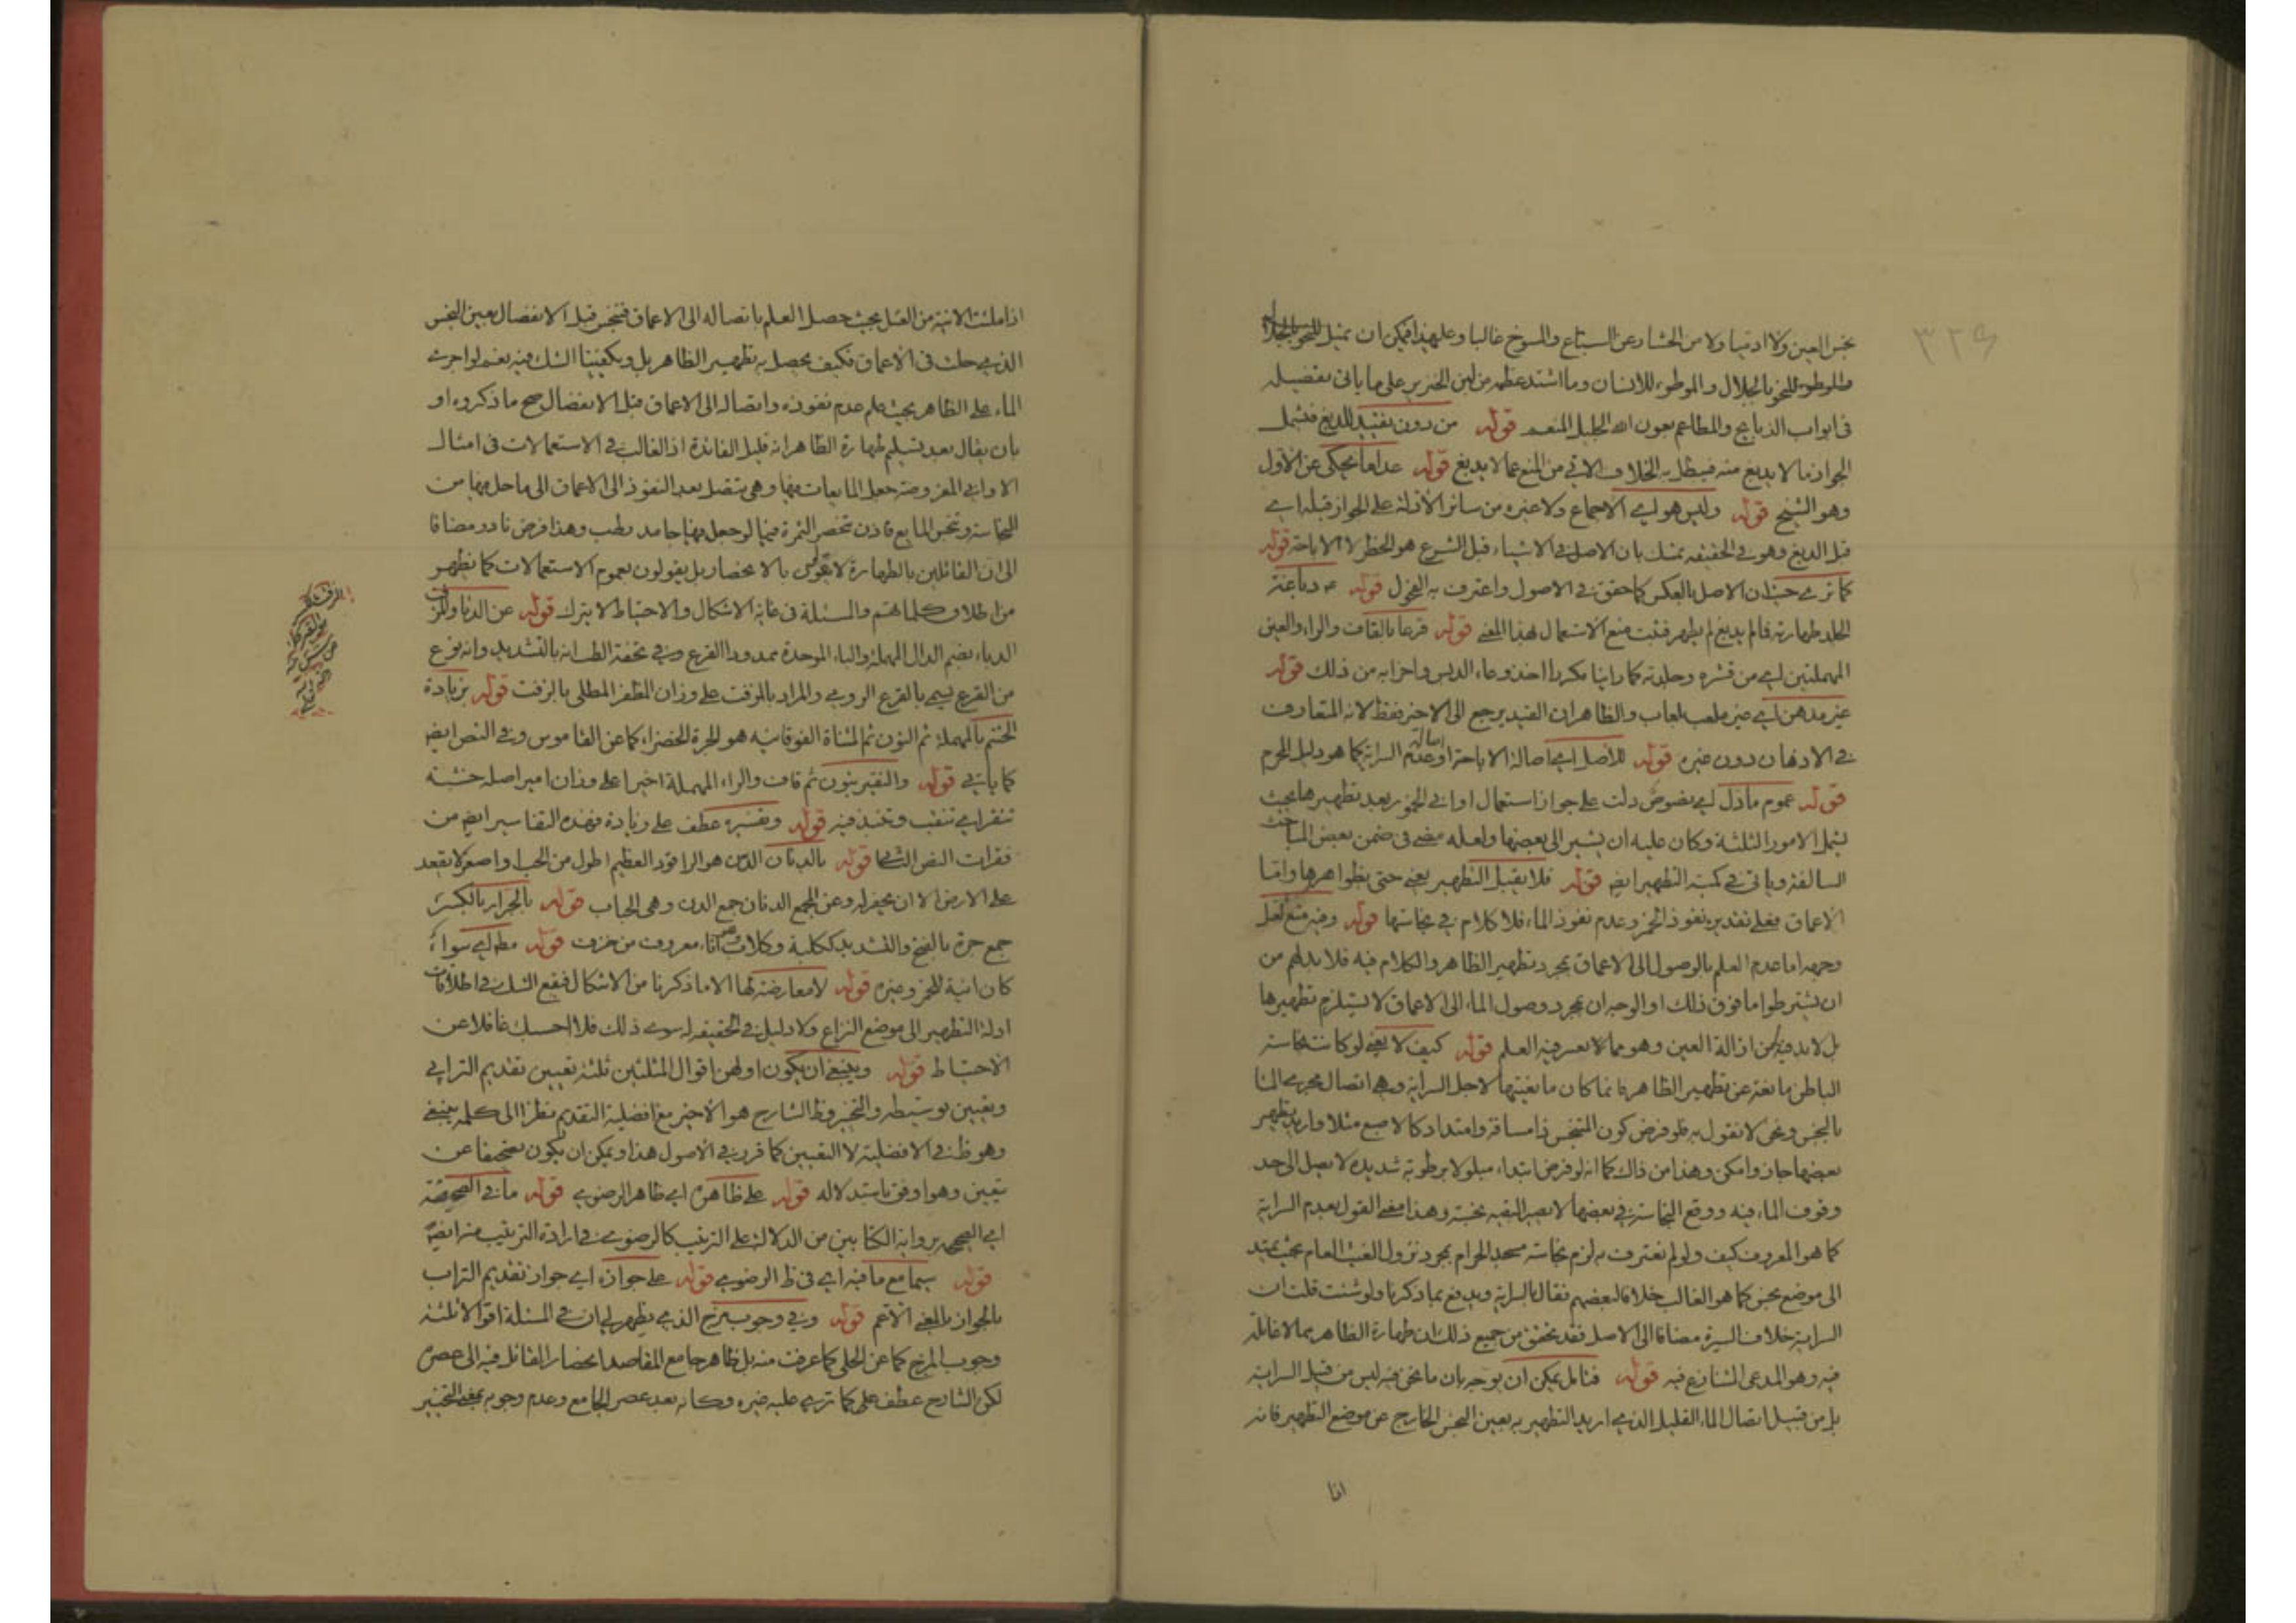 ۳۲۹
نجس العين ولا ادميا ولا من الحشار عن السباع والمسوخ غالبا وعليهذا فيمكن ان يمثل
للنحو بالجلال والموطوء للانسان وما اشتد عظمه من لبن الخنزير على ما ياتى تفصيله
فى ابواب الذبايح والمطاعم بعون الله الجليل المنعم قوله من دون تقييد للدبغ فيشمل
الجواز ما لا يدبغ منه فيبطل به الخلاف الاتى من المنع عما لا يدبغ قوله عدا ما يحكى عن الاول
وهو الشيخ قوله وليس هو اى الاجماع ولا غيره من سائر الادلة على الجواز قبله اى
قبل الدبغ وهو فى الحقيقه تمسك بان الاصل فى الاشياء قبل الشرع هو الحظر لا الاباحة قوله
كما ترى حيث ان الاصل بالعكس كما حقق فى الاصول واعترف به الفحول قوله دباغة
الجلد طهارته فالم يدبغ لم يطهر فثبت منع الاستعمال لهذا المعنى قوله قرعا بالقاف والراء والعين
المهملتين اى من قشره وجلدته كما راينا مكررا اخذ وعاء الدبس واضرابه من ذلك قوله
غير مدهن اى غير ملعب لعاب والظاهر ان القيد يرجع الى الاخير فقط لانه المتعارف
فى الادهان دون غيره قوله للاصل اى اصالة الاباحة او اصالة عدم السراية كما هو دليل المحرم
قوله عموم ما دل اى نصوص دلت على جواز استعمال اوانى الخمر بعد تطهيرها بحيث
يشمل الامور الثلثة وكان عليه ان يشير الى بعضها ولعله مضى فى ضمن بعض المباحث
السالفة وياتى فى كمية التطهير ايضا قوله فلا يقبل التطهير يعنى حتى بظواهرها واما
الاعماق فعلى تقدير نفوذ الخمر وعدم نفوذ الماء فلا كلام فى نجاستها قوله وفيه منع لعل
وجهه اما عدم العلم بالوصول الى الاعماق بمجرد تطهير الظاهر والكلام فيه فلا بد لهم من
ان يشترطوا ما فوق ذلك او الوجه ان بمجرد وصول الماء الى الاعماق لا يستلزم تطهيرها
بل لا بد فيه من ازالة العين وهو مما لا يعسر فيه العلم قوله كيف لا يعنى لو كانت نجاسة
الباطن مانعة عن تطهير الظاهر فانما كان مانعيتها لاجل السراية وهى اتصال مجرى الماء
بالنجس ونحن لا نقول به فلو فرض كون المتنجس ذا مسافة وامتداد كالاصبع مثلا واريد تطهير
بعضها جاز وامكن وهذا من ذاك كما انه لو فرض ابتداء مبلولا برطوبة شديده لا يصل الى حد
وقوف الماء فيه ووقع النجاسة فى بعضها لا يصير البقيه نجسة وهذا معنى القول بعدم السراية
كما هو المعروف كيف ولو لم نعترف به لزم نجاسة مسجد الحرام بمجرد نزول الغيث العام بحيث يمتد
الى موضع نجس كما هو الغالب خلافا لبعضهم فقال بالسراية ويدفع بما ذكرنا ولو شئت قلت ان
السراية خلاف السيرة مضافا الى الاصل فقد تحقق من جميع ذلك ان طهارة الظاهر مما لا غائلة
فيه وهو المدعى المتنازع فيه قوله فتامل يمكن ان يوجه بان ما نحن فيه ليس من قبيل السراية
بل من قبيل اتصال الماء القليل الذى اريد التطهير به بعين النجس الخارج عن موضع التطهير فانه
اذا
اذا ملئت الانية من الغسل بحيث حصل العلم باتصاله الى الاعماق فتنجس قبل الانفصال بعين النجس
الذى حلت فى الاعماق فكيف يحصل به تطهير الظاهر بل ويكفينا الشك فيه نعم لو اجرى
الماء على الظاهر بحيث علم عدم نفوذه واتصاله الى الاعماق قبل الانفصال صح ما ذكروه او
بان يقال بعد تسليم طهارة الظاهر انه قليل الفائدة اذ الغالب فى الاستعمالات فى امثال
الاوانى المفروضة جعل المايعات فيها وهى تتصل بعد النفوذ الى الاعماق الى ما حل فيها من
النجاسة وتنجس المايع فاذن تنحصر الثمرة فيما لو جعل فيها جامد رطب وهذا فرض نادر مضافا
الى ان القائلين بالطهارة لا يقولون بالانحصار بل يقولون بعموم الاستعمالات كما يظهر
من اطلاق كلماتهم والمسئلة فى غاية الاشكال والاحتياط لا يترك قوله عن الدباء والمزفت
الدباء بضم الدال المهملة والباء الموحدة ممدودا القرع وفى تحفة الطب انه بالتشديد وانه نوع
من القرع يسمى بالقرع الرومى والمراد بالمزفت على وزان المظفر المطلى بالزفت قوله بزيادة
الحنتم بالمهملة ثم النون ثم المثناة الفوقانيه هو الجرة الخضراء كما عن القاموس وفى النص ايضا
كما ياتى قوله والنقير بنون ثم قاف والراء المهملة اخيرا على وزان امير اصله خشبة
تنقر اى تنقب وتنبذ فيه قوله وتفسيره عطف على زيادة فهذه التفاسير ايضا من
فقرات النص قوله بالدنان الدن هو الراقود العظيم اطول من الحب او اصغر لا يقعد
على الارض الا ان يحفر له وعن المجمع الدنان جمع الدن وهى الحباب قوله بالجرار بالكسر
جمع جرة بالفتح والتشديد ككلبة وكلاب اناء معروف من خزف قوله مطلقا اى سواء
كان انية للخمر وغيره قوله لا معارض لها الا ما ذكرنا من الاشكال فيقع الشك فى اطلاقات
ادلة التطهير الى موضع النزاع ولا دليل فى الحقيقه له سوى ذلك فلا احسبك غافلا عن
الاحتياط قوله وينبغى ان يكون اولهن اقوال المثلثين ثلثة تعيين تقديم الترابى
وتعيين توسيطه والتخيير وظ الشارح هو الاخير مع افضلية التقديم نظرا الى كلمة ينبغى
وهو ظ فى الافضلية لا التعيين كما قرر فى الاصول هذا ويمكن ان يكون تصحيفا عن
يتعين وهو اوفق باستدلاله قوله على ظاهره اى ظاهر الرضوى قوله ما فى الصحيحة
اى الصحيح برواية الكتابين من الدلالة على الترتيب كالرضوى فى ارادة الترتيب منه ايضا
قوله سيما مع ما فيه اى فى ظ الرضوى قوله على جوازه اى جواز تقديم التراب
بالجواز بالمعنى الاعم قوله وفى وجوب مزج الذى يظهر لى ان فى المسئلة اقوالا ثلثة
وجوب المزج كما عن الحلى كما عرفت منه بل ظاهر جامع المقاصد انحصار القائل فيه الى عصره
لكن الشارح عطف على كما ترى عليه غيره وكانه بعد عصر الجامع وعدم وجوبه بمعنى التخيير